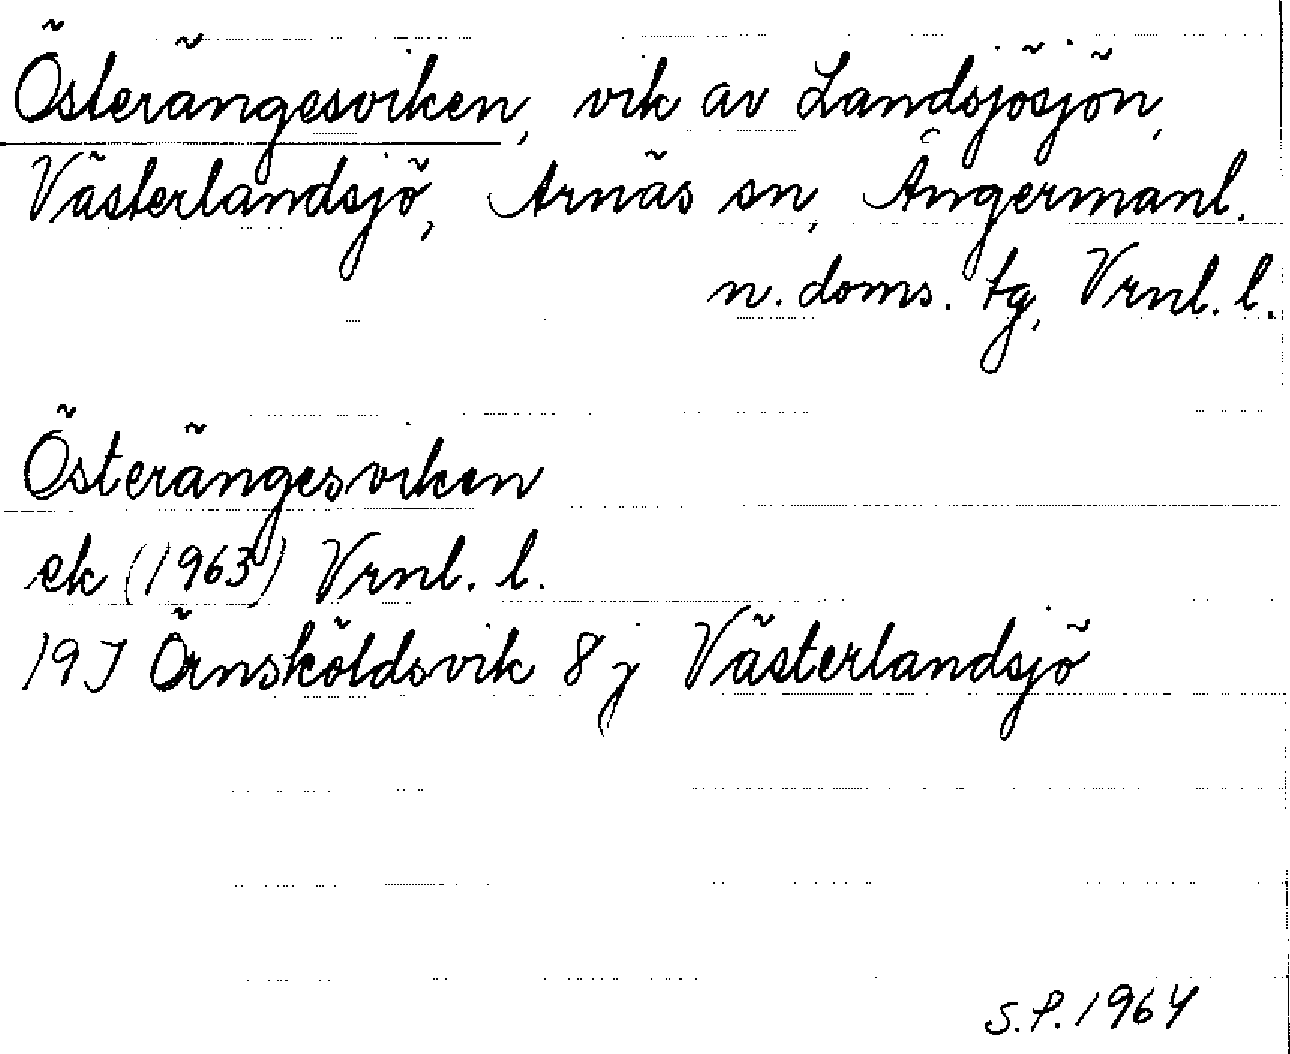 Österängesviken, vik av Landsjösjön,
Västerlandsjö, Arnäs sn, Ångermanl.
n. doms. tg, Vrnl. l.
Österängesviken
ek (1963) Vrnl. l.
19J Örnsköldsvik 8 j Västerlandsjö
S.P. 1964